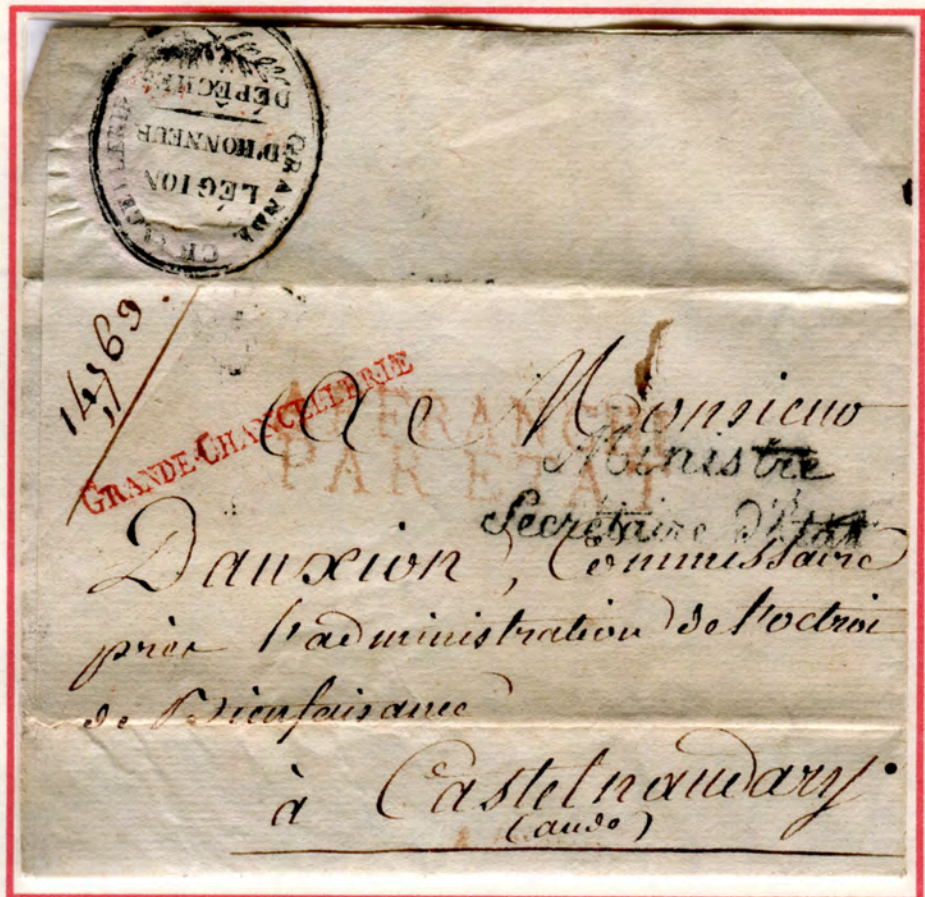 GRANDE CHANCELLERIE
LÉGION
D'HONNEUR
DÉPÊCHES
14569
GRANDE-CHANCELLERIE
AFFRANCHI
PAR ETAT
A Monsieur
Ministre
Secrétaire d'Etat
Dauxion, Commissaire
près l'administration de l'octroi
de Bienfaisance
à Castelnaudary
(aude)